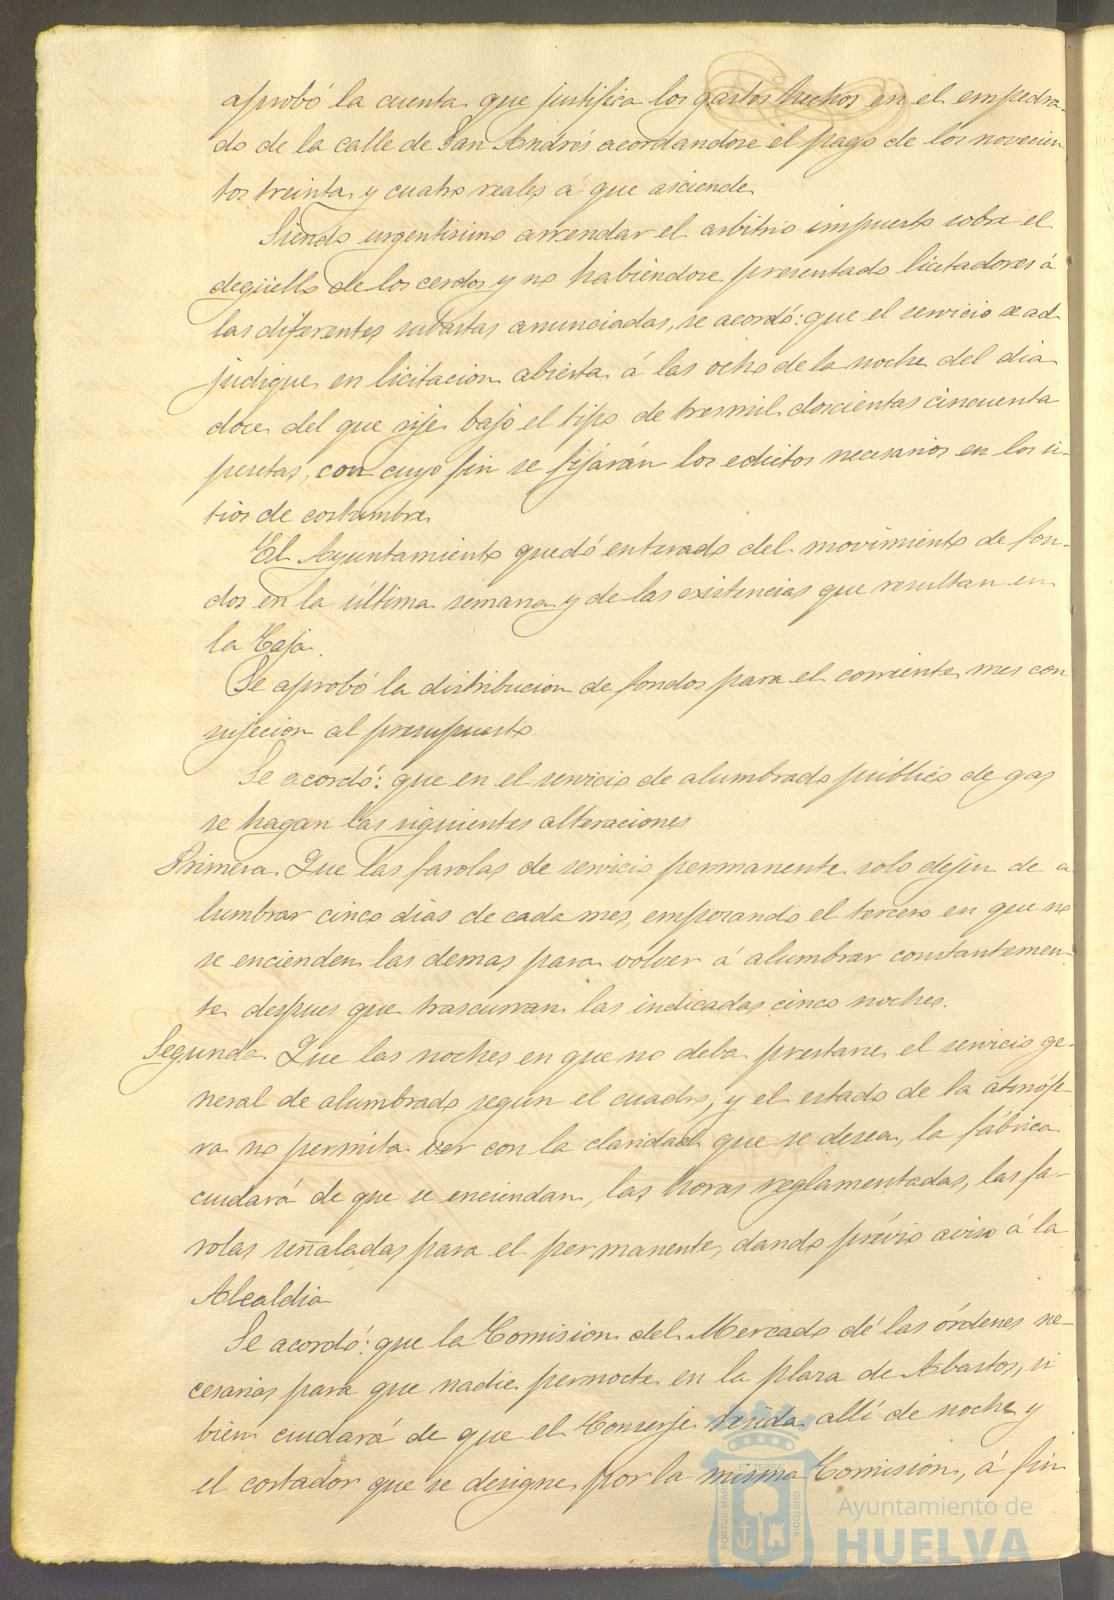 aprobó la cuenta que justifica los gastos hechos en el empedra-
do de la calle de San Andrés acordandose el pago de los novecien
tos treinta y cuatro reales á que asciende
Siendo urgentisimo arrendar el arbitrio impuesto sobre el
degüello de los cerdos y no habiendose presentado licitadores á
las diferentes subastas anunciadas, se acordó: que el servicio se ad-
judique en licitacion abierta á las ocho de la noche del dia
doce del que rije bajo el tipo de tresmil doscientas cincuenta
pesetas, con cuyo fin se fijarán los edictos necesarios en los si-
tios de costumbre
El Ayuntamiento quedó enterado del movimiento de fon-
dos en la última semana y de las existencias que resultan en
la Caja.
Se aprobó la distribucion de fondos para el corriente mes con
sujecion al presupuesto
Se acordó: que en el servicio de alumbrado público de gas
se hagan las siguientes alteraciones
Primera. Que las farolas de servicio permanente solo dejen de a
lumbrar cinco dias de cada mes, empezando el tercero en que no
se encienden las demas para volver á alumbrar constantemen-
te despues que trascurran las indicadas cinco noches.
Segunda. Que las noches en que no deba prestarse el servicio ge-
neral de alumbrado segun el cuadro, y el estado de la atmósfe-
ra no permita ver con la claridad que se desea, la fábrica
cuidará de que se enciendan, las horas reglamentadas, las fa-
rolas señaladas para el permanente, dando prévio aviso á la
Alcaldia
Se acordó: que la Comision del Mercado dé las órdenes ne-
cesarias para que nadie pernocte en la plaza de Abastos, si
bien cuidará de que el Conserje resida allí de noche y
el cortador que se designe por la misma Comision, á fin
Ayuntamiento de
HUELVA
PORTUS MARIS
ET TERRAE
CUSTODIA